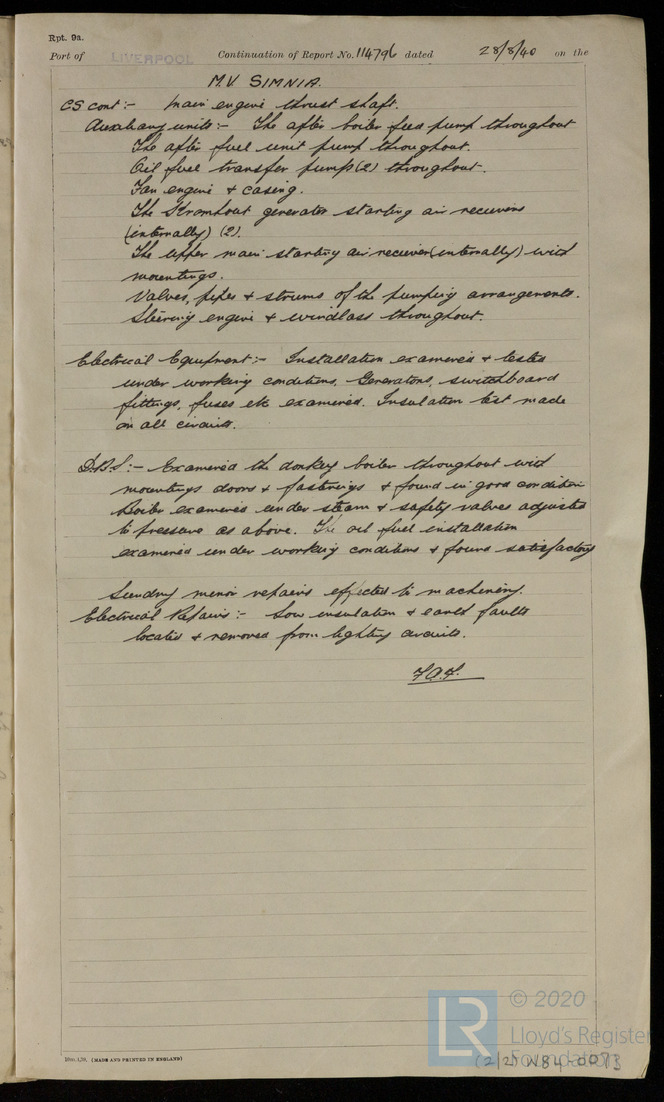 Rpt. 9a.
Port of LIVERPOOL Continuation of Report No. 114796 dated 28/8/40 on the
M.V. SIMNIA.
CS cont:- Main engine thrust shaft.
Auxiliary units:- The after boiler feed pump throughout
The after fuel unit pump throughout.
Oil fuel transfer pumps (2) throughout.
Fan engine & casing.
The Kromhout generator starting air receivers
(internally) (2).
The upper main starting air receiver (internally) with
mountings.
Valves, pipes & strums of the pumping arrangements.
Steering engine & windlass throughout.
Electrical Equipment:- Installation examined & tested
under working conditions. Generators, switchboard
fittings, fuses etc examined. Insulation test made
on all circuits.
D.B.S:- Examined the donkey boiler throughout with
mountings doors & fastenings & found in good condition
Boiler examined under steam & safety valves adjusted
to pressure as above. The oil fuel installation
examined under working conditions & found satisfactory
Sundry minor repairs effected to machinery.
Electrical Repairs:- Low insulation & earth faults
located & removed from lighting circuits.
(MADE AND PRINTED IN ENGLAND)
LR
© 2020
Lloyd's Register
Foundation
(2/2) W84-0073